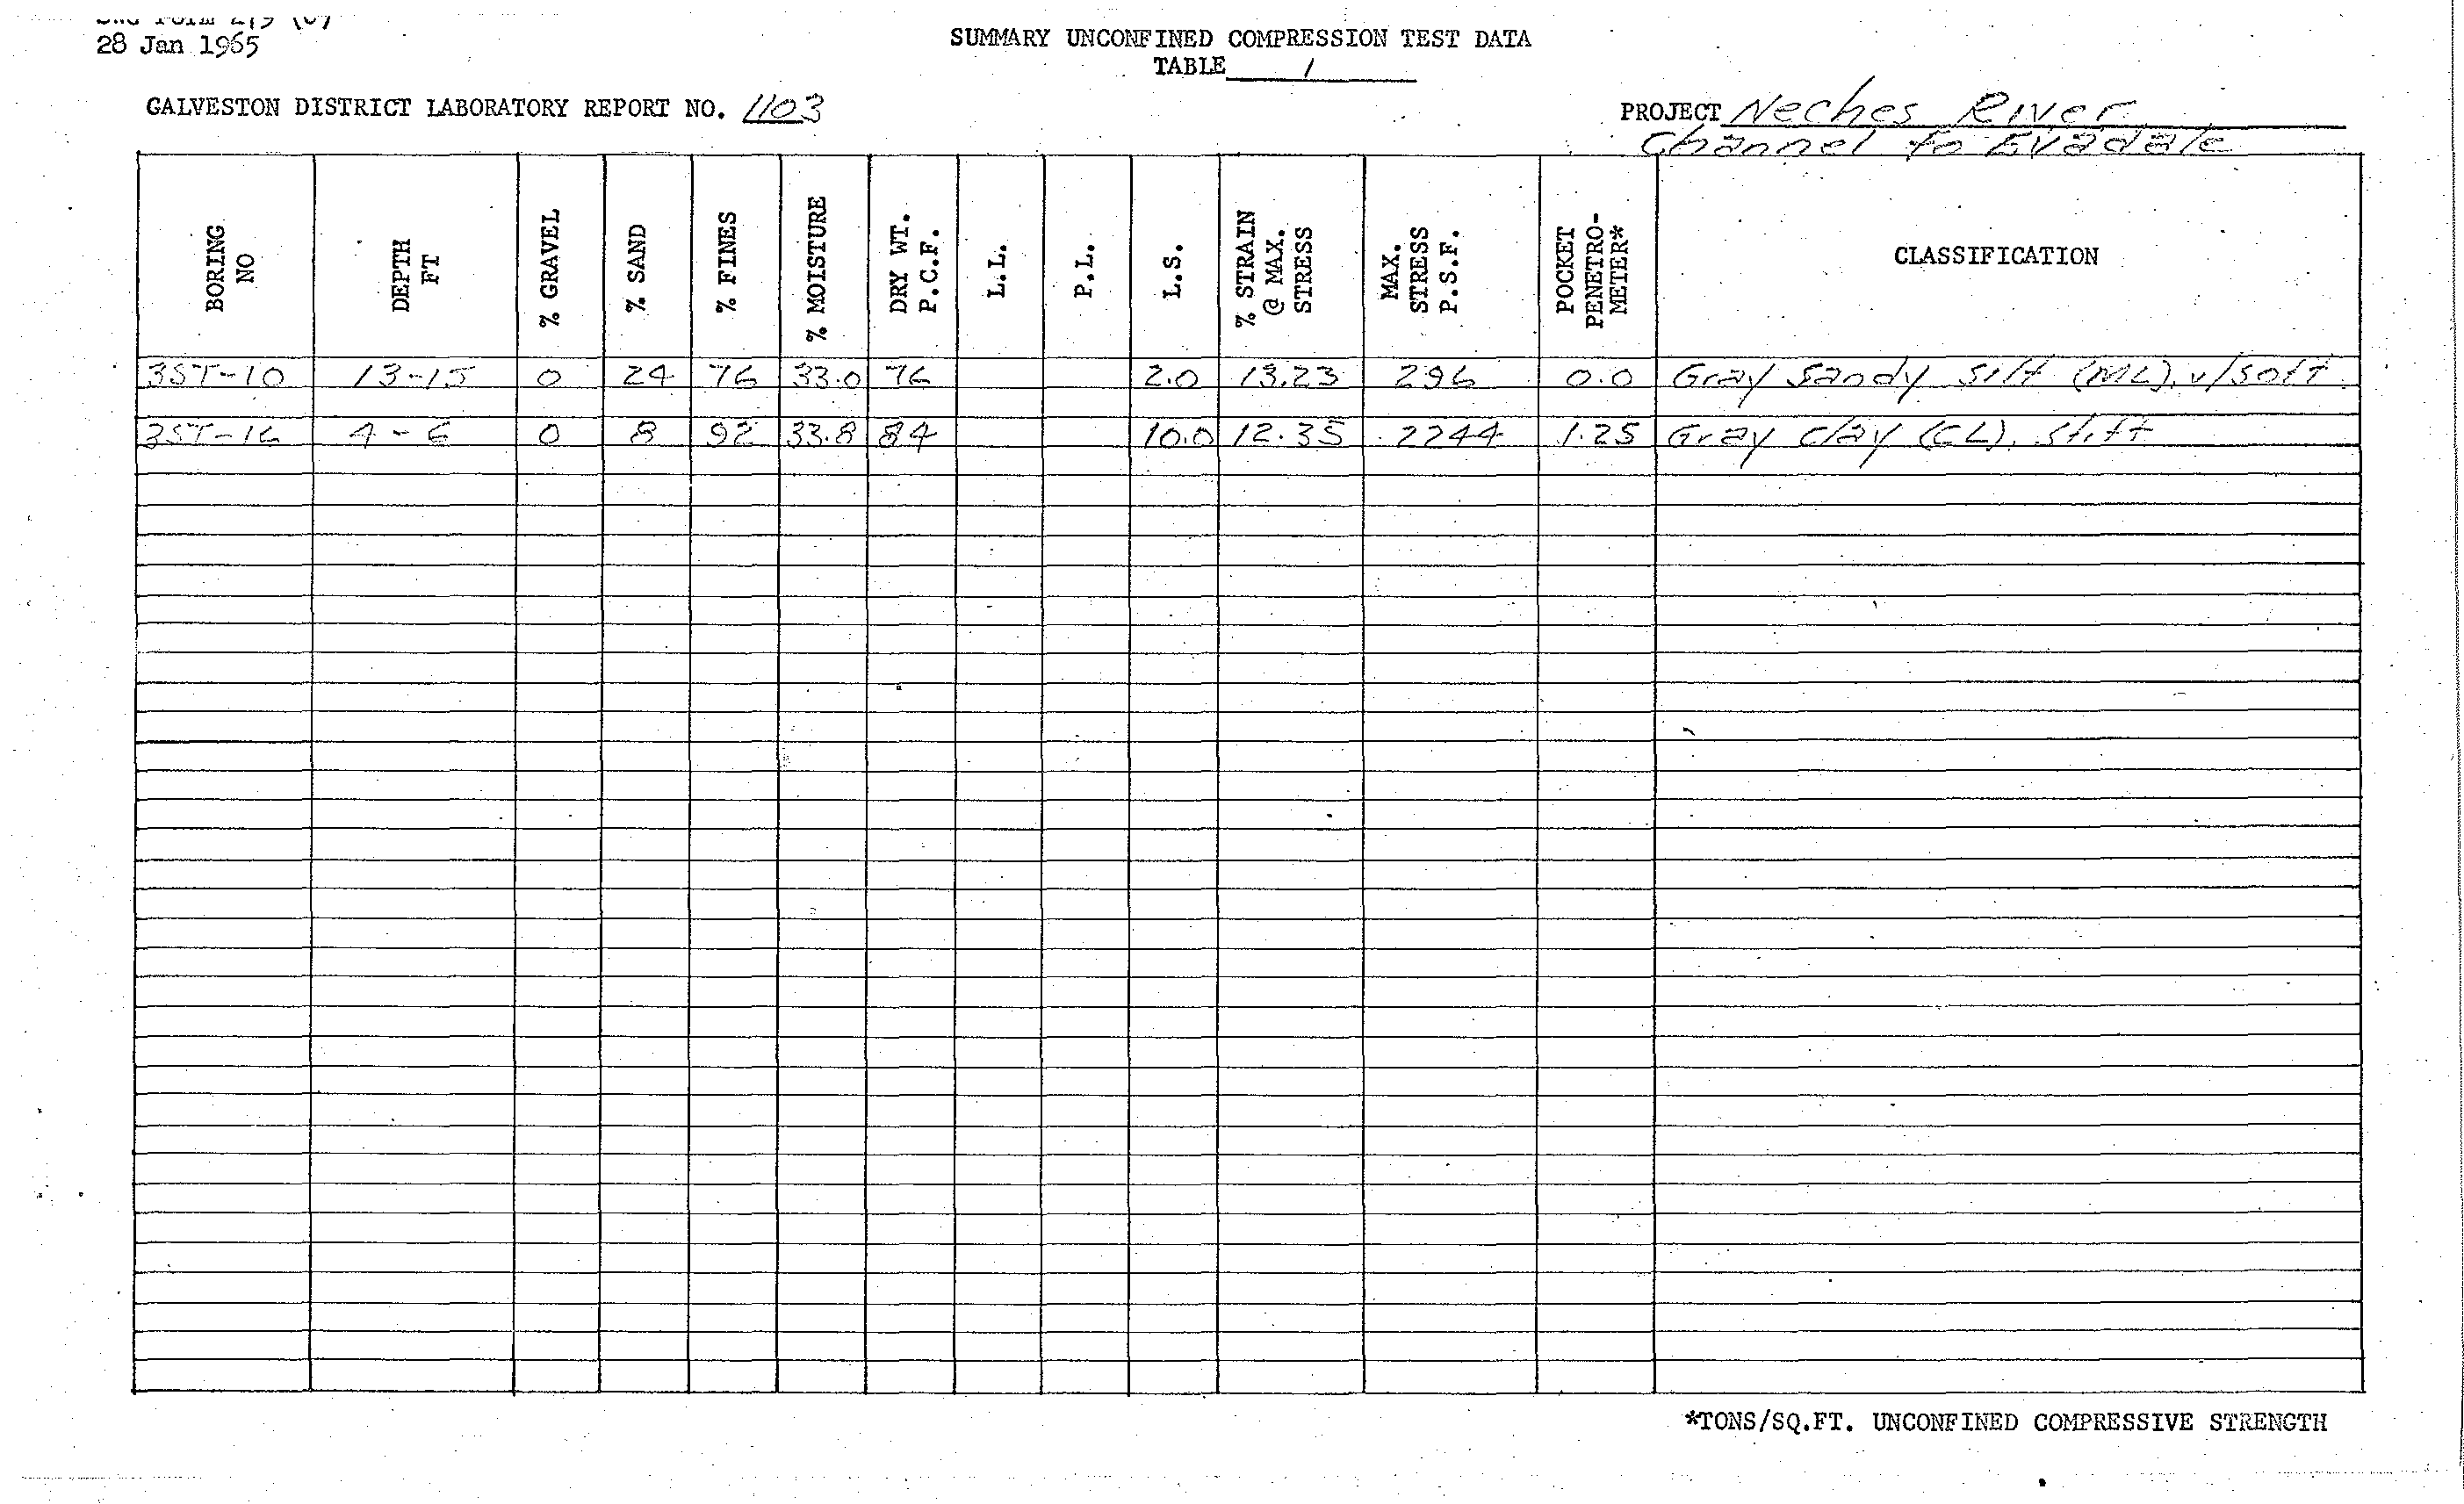 28 Jan 1965
SUMMARY UNCONFINED COMPRESSION TEST DATA
TABLE 1
GALVESTON DISTRICT LABORATORY REPORT NO. 1103
PROJECT Neches River
Channel to Evadale
BORING NO DEPTH FT % GRAVEL % SAND % FINES % MOISTURE DRY WT. P.C.F. L.L. P.L. L.S. % STRAIN @ MAX. STRESS MAX. STRESS P.S.F. POCKET PENETRO-METER* CLASSIFICATION
3ST-10 13-15 0 24 76 33.0 76 2.0 13.23 296 0.0 Gray Sandy silt (ML), v/soft
3ST-16 4-6 0 8 92 33.8 84 10.0 12.35 2244 1.25 Gray clay (CL), stift
*TONS/SQ.FT. UNCONFINED COMPRESSIVE STRENGTH